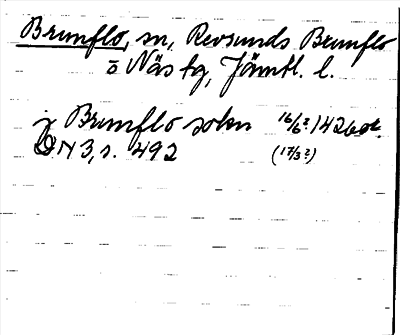 Brunflo, sn, Revsunds Brunflo
o Näs tg, Jämtl. l.
j Brunflo sokn 16/6? 1426 or.
DN 3, s. 492 (17/3?)